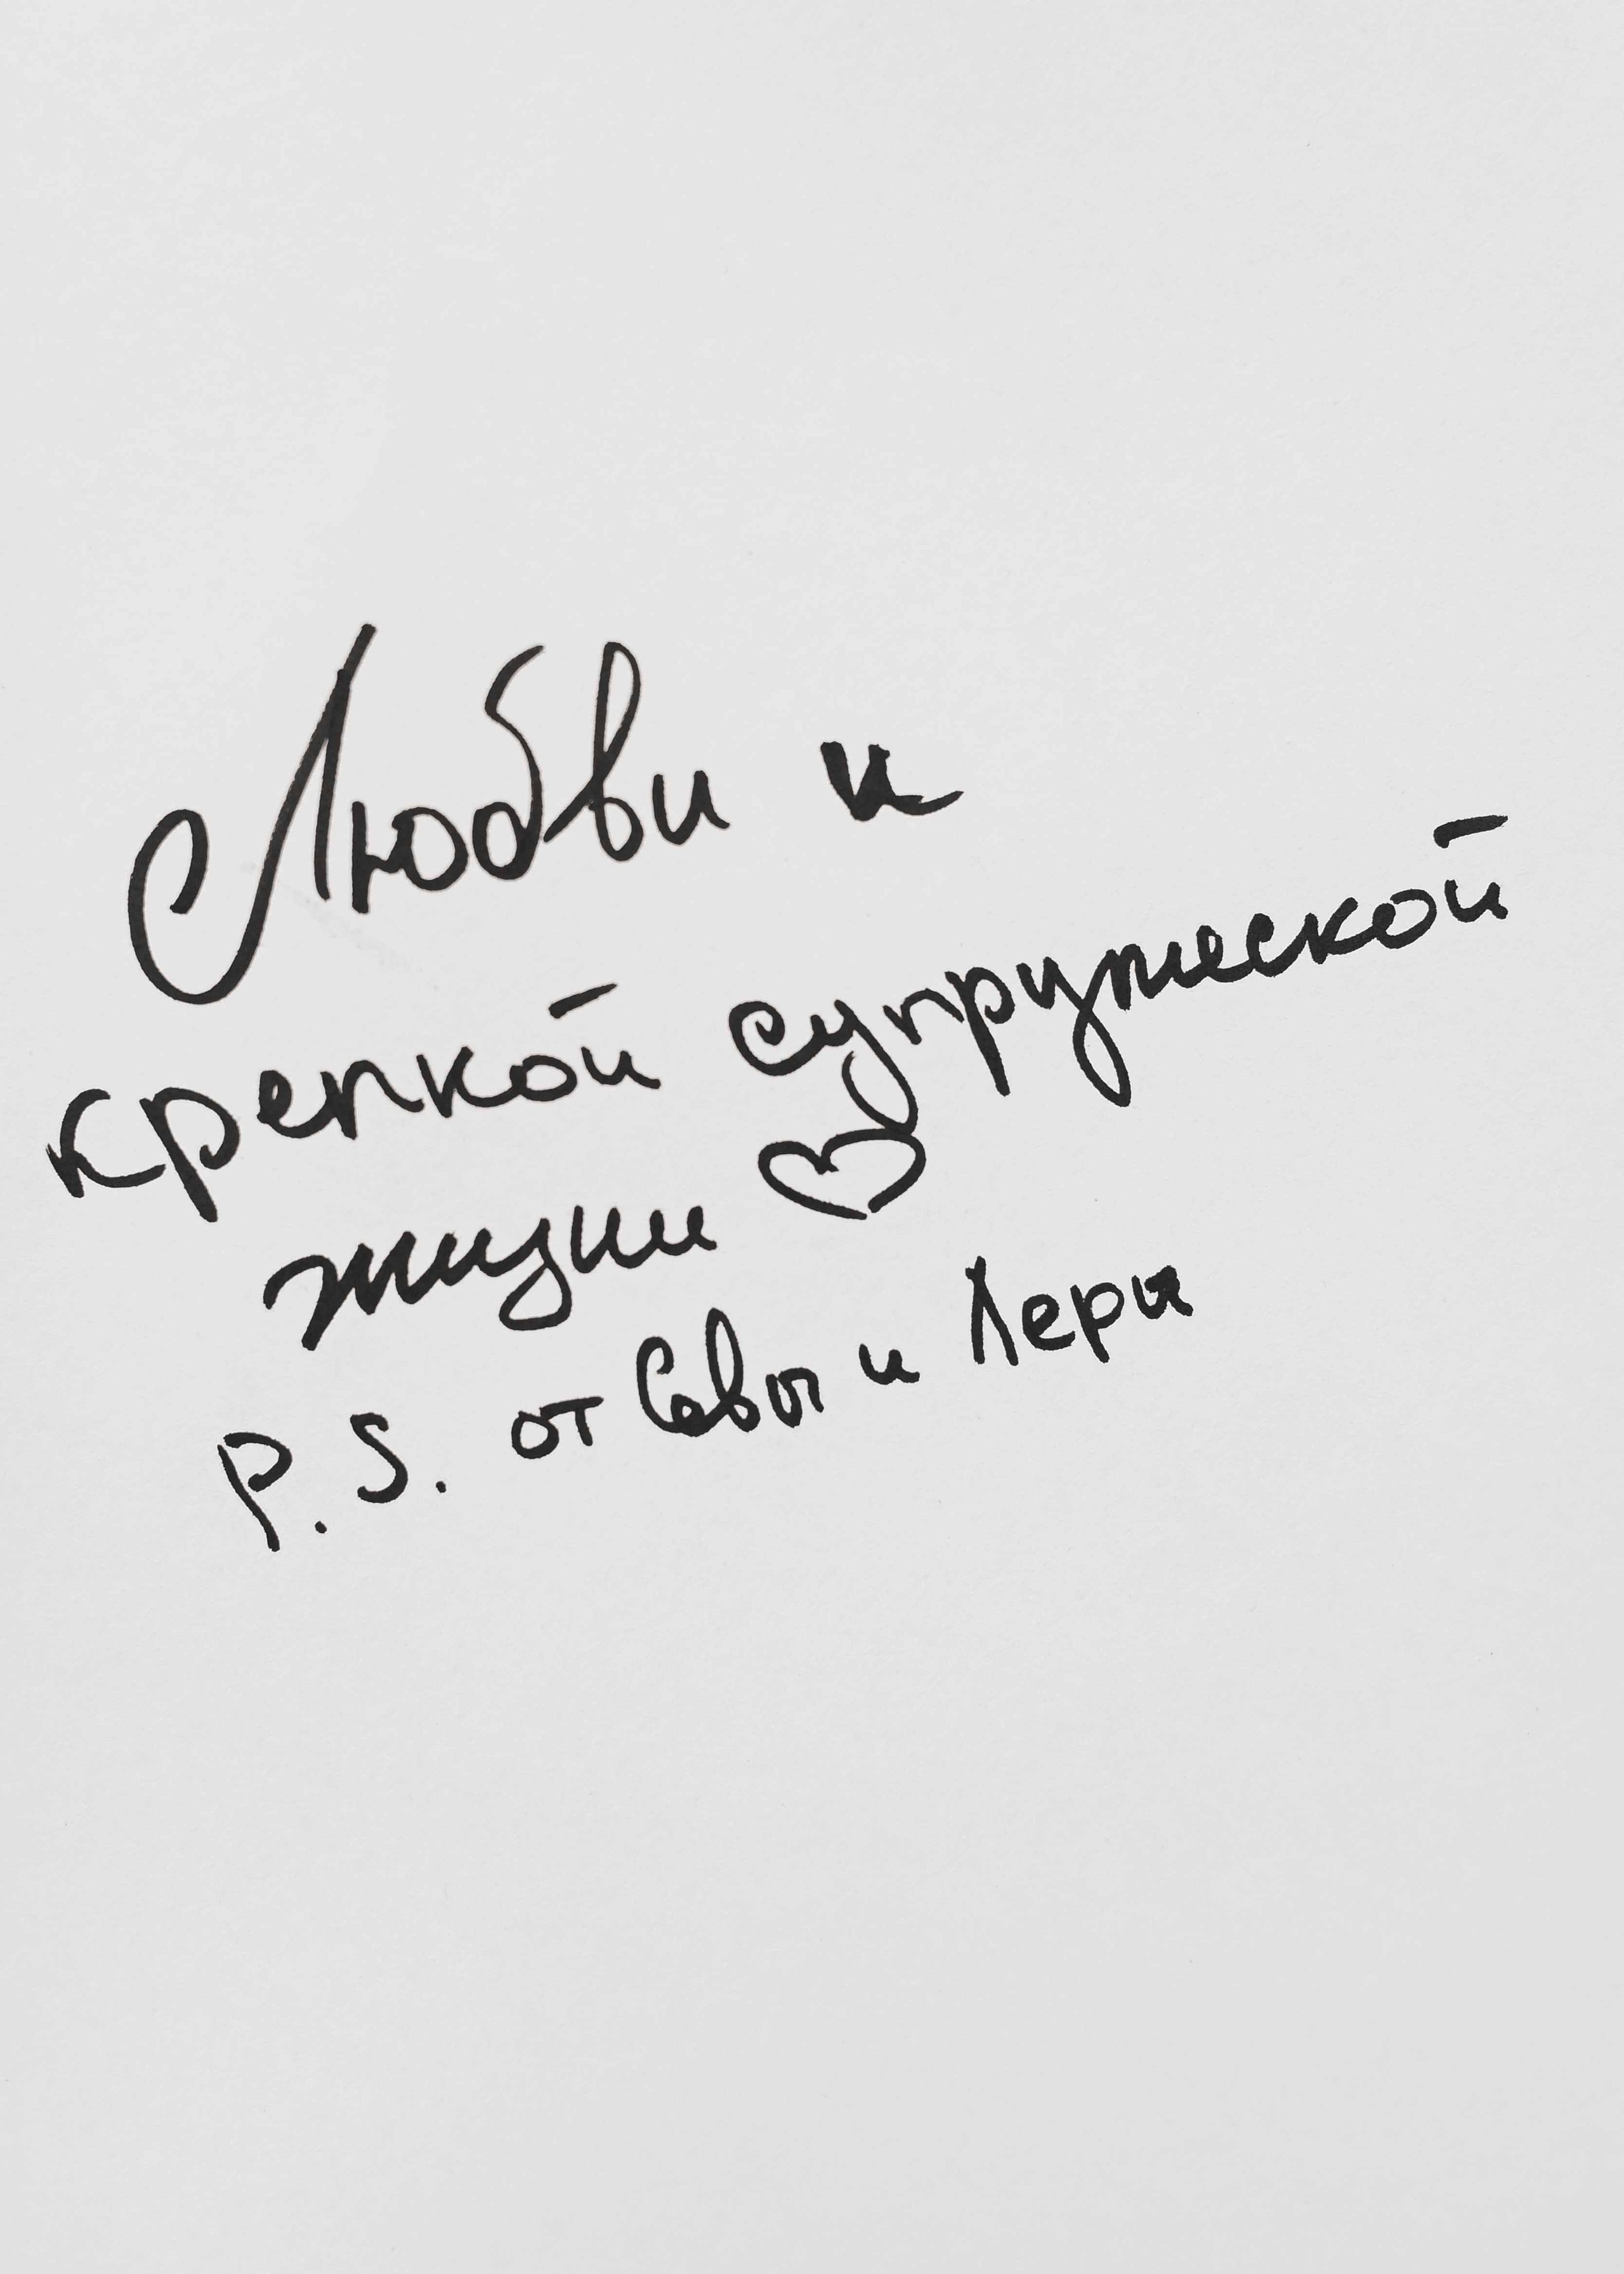 Любви и
крепкой супружеской
жизни ♡
P.S. от Севы и Леры